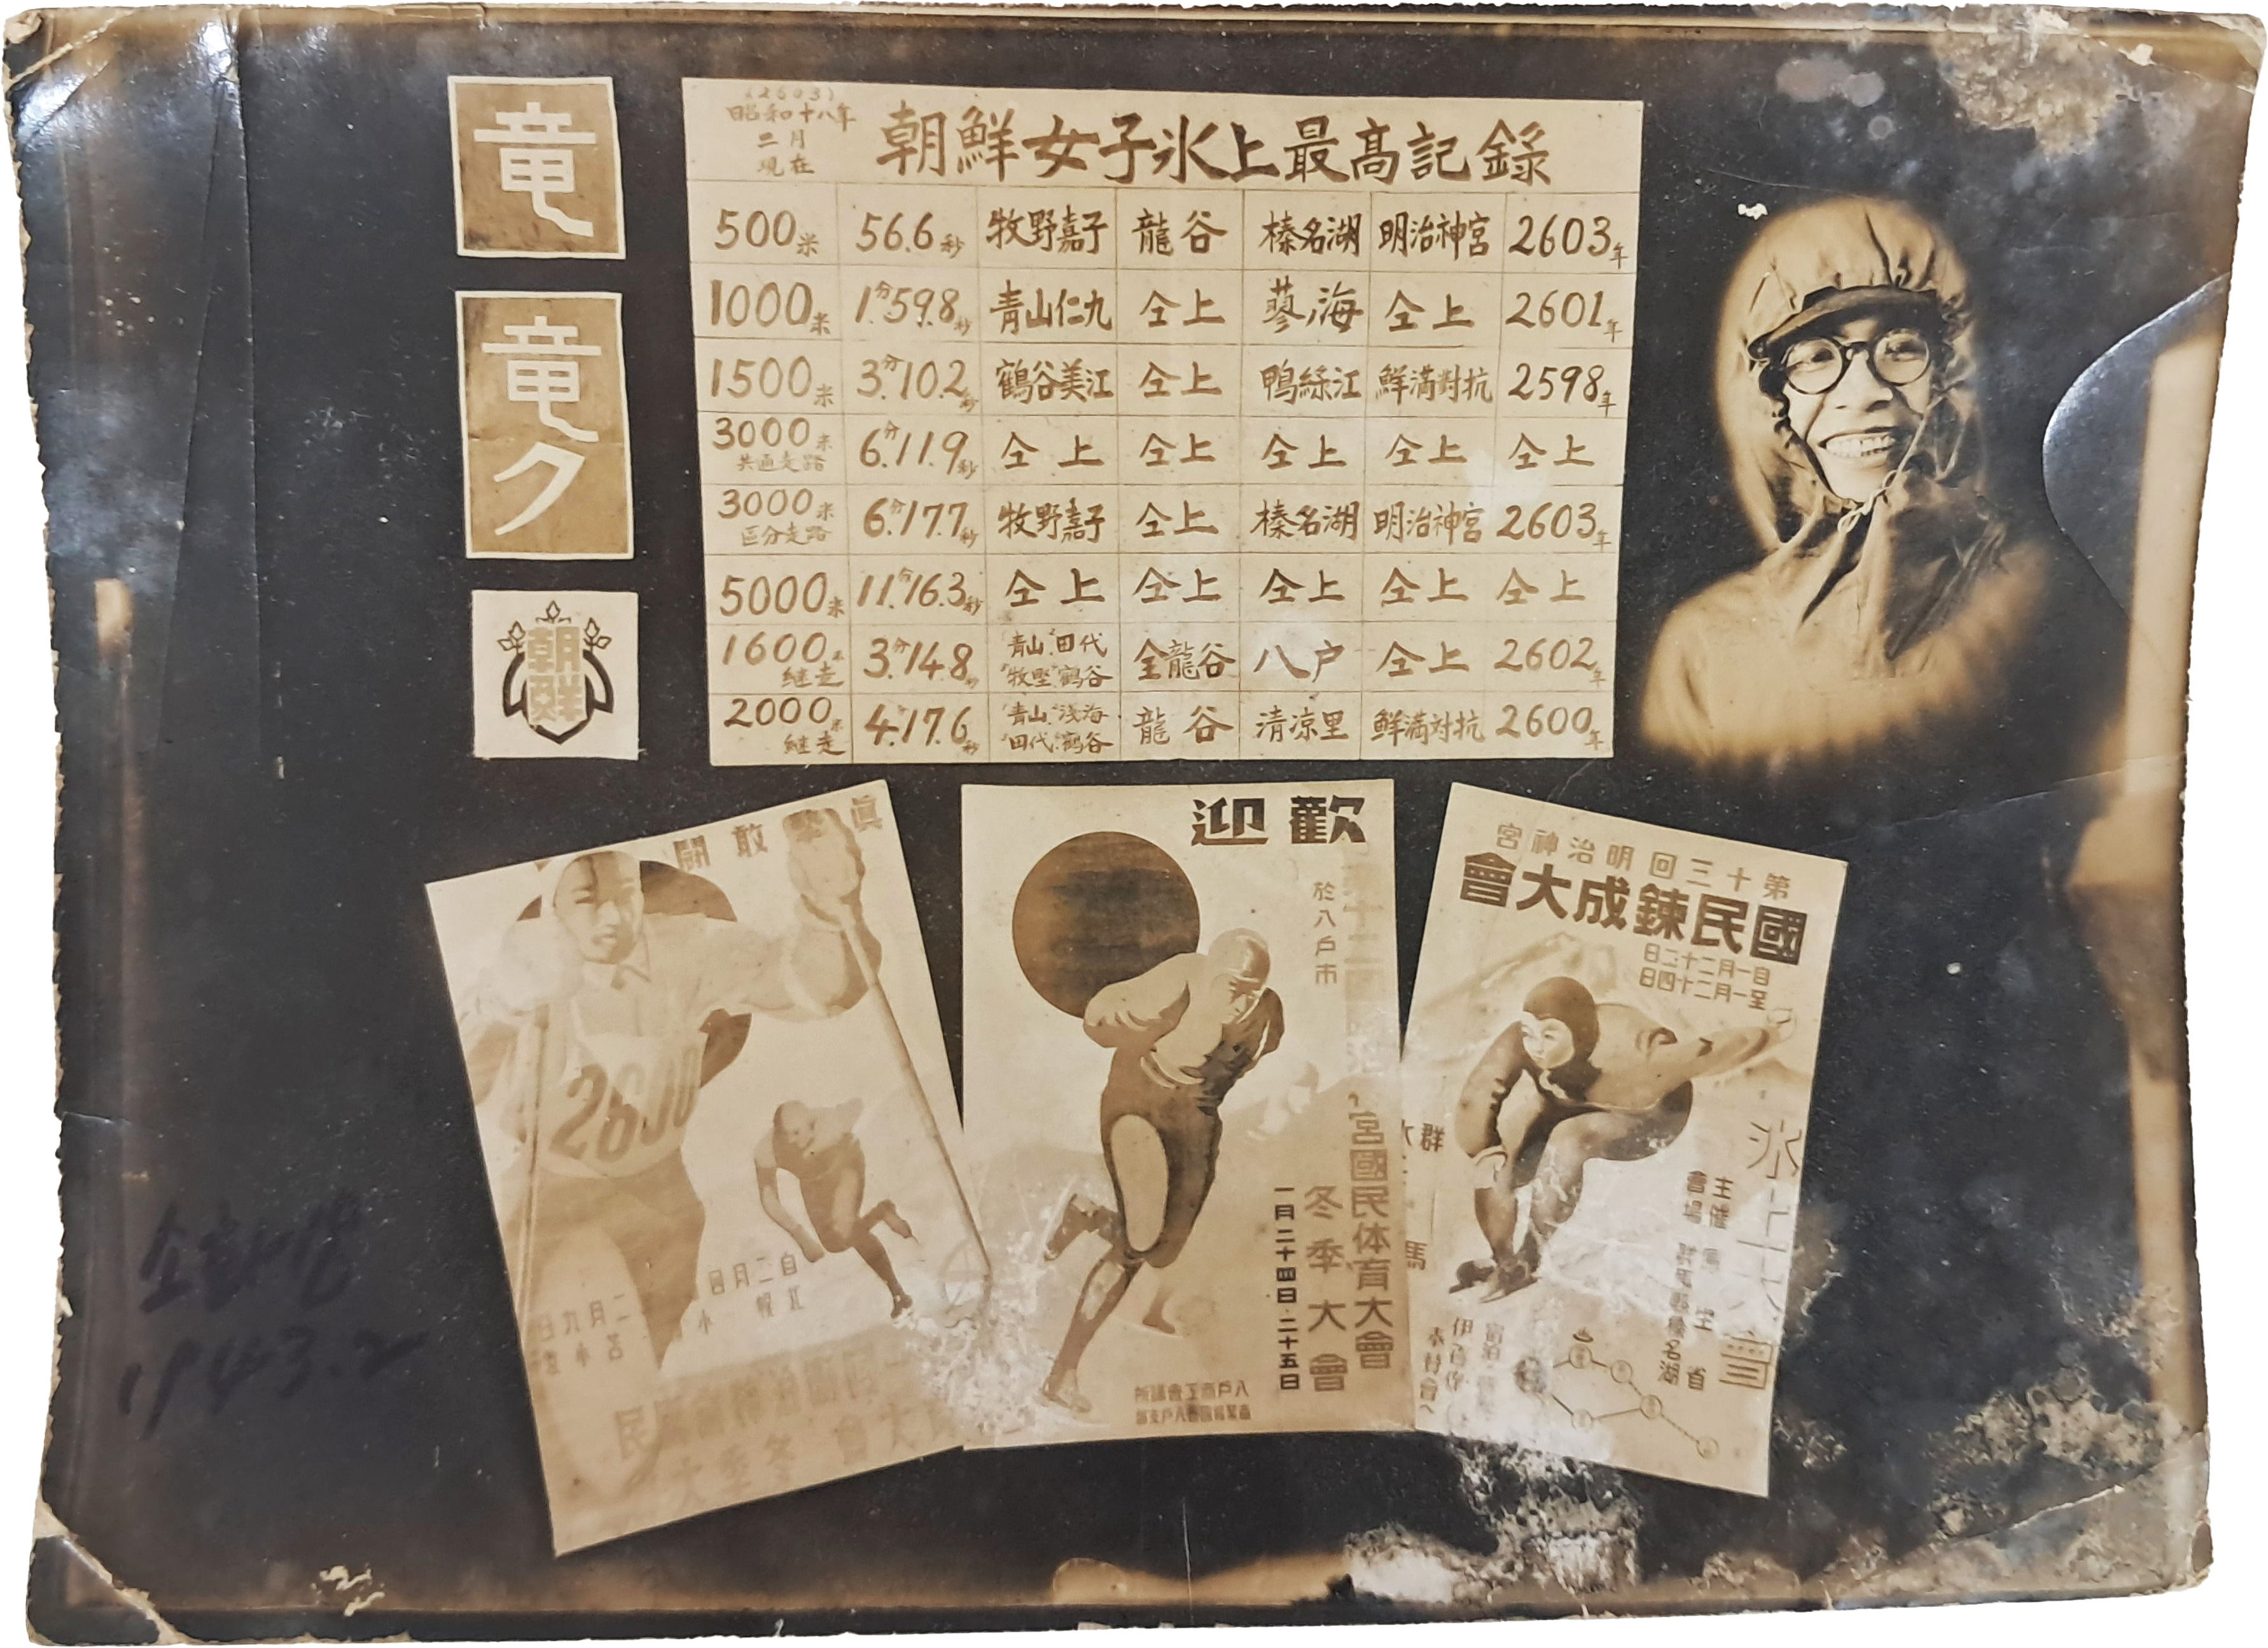 竜
竜ク
朝鮮
(2603)
昭和十八年
二月
現在
朝鮮女子氷上最高記錄
500米 56.6秒 牧野嘉子 龍谷 榛名湖 明治神宮 2603年
1000米 1分59.8秒 青山仁九 仝上 蓼ノ海 仝上 2601年
1500米 3分10.2秒 鶴谷美江 仝上 鴨綠江 鮮滿對抗 2598年
3000米 共通走路 6分11.9秒 仝上 仝上 仝上 仝上 仝上
3000米 區分走路 6分17.7秒 牧野嘉子 仝上 榛名湖 明治神宮 2603年
5000米 11分16.3秒 仝上 仝上 仝上 仝上 仝上
1600米 継走 3分14.8秒 青山 田代 牧野 鶴谷 全龍谷 八戸 仝上 2602年
2000米 継走 4分17.6秒 青山 浅海 田代 鶴谷 龍谷 清凉里 鮮滿対抗 2600年
眞 敢闘
2600
自二月
二月九日
歡迎
於八戶市
宮國民体育大會
冬季大會
一月二十四日・二十五日
八戶商工會議所
第十三回明治神宮
國民鍊成大會
自一月二十二日
至一月二十四日
氷上大會
主催 厚生省
會場 群馬縣榛名湖
群馬
1943.2